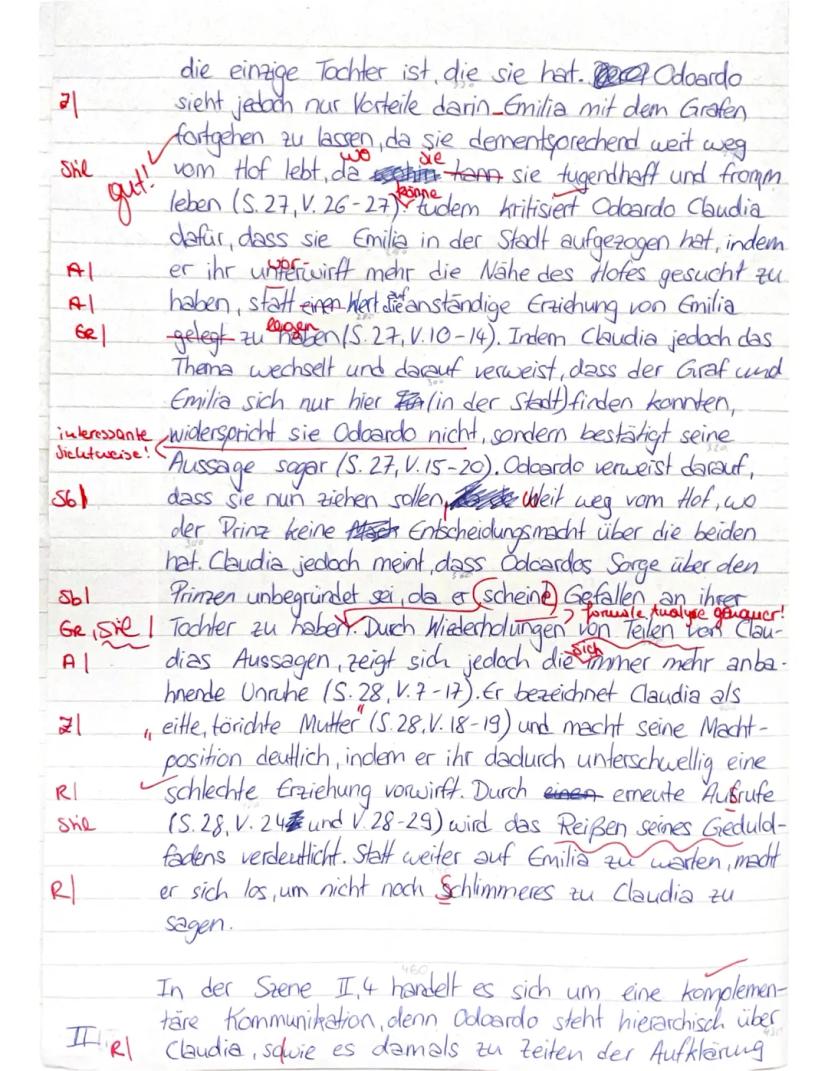 die einzige Tochter ist, die sie hat. Odoardo
Z| sieht jedoch nur Vorteile darin Emilia mit dem Grafen
fortgehen zu lassen, da sie dementsprechend weit weg
Stil gut! vom Hof lebt, da wo sie kann sie tugendhaft und fromm
könne
leben (S. 27, V. 26-27). Zudem kritisiert Odoardo Claudia
dafür, dass sie Emilia in der Stadt aufgezogen hat, indem
vor
A| er ihr unterwirft mehr die Nähe des Hofes gesucht zu
A| haben, statt einen Wert auf die anständige Erziehung von Emilia
legen
GR| gelegt zu haben (S. 27, V. 10-14). Indem Claudia jedoch das
Thema wechselt und darauf verweist, dass der Graf und
Emilia sich nur hier (in der Stadt) finden konnten,
interessante widerspricht sie Odoardo nicht, sondern bestätigt seine
Sichtweise! Aussage sogar (S. 27, V. 15-20). Odoardo verweist darauf,
Sb| dass sie nun ziehen sollen, Weit weg vom Hof, wo
der Prinz keine Entscheidungsmacht über die beiden
hat. Claudia jedoch meint, dass Odoardos Sorge über den
Sb| Prinzen unbegründet sei, da er (scheine) Gefallen an ihrer
? formale Analyse genauer!
GR, Stil| Tochter zu haben. Durch Wiederholungen von Teilen von Clau-
sich
A| dias Aussagen, zeigt sich jedoch die immer mehr anba-
hnende Unruhe (S. 28, V. 7-17). Er bezeichnet Claudia als
Z| „eitle, törichte Mutter" (S. 28, V. 18-19) und macht seine Macht-
position deutlich, indem er ihr dadurch unterschwellig eine
schlechte Erziehung vorwirft. Durch einen erneute Außrufe
R|
Stil (S. 28, V. 24 und V. 28-29) wird das Reißen seines Geduld-
fadens verdeutlicht. Statt weiter auf Emilia zu warten, macht
R| er sich los, um nicht noch Schlimmeres zu Claudia zu
sagen.
460
In der Szene II,4 handelt es sich um eine komplemen-
täre Kommunikation, denn Odoardo steht hierarchisch über
II. R| Claudia, sowie es damals zu Zeiten der Aufklärung